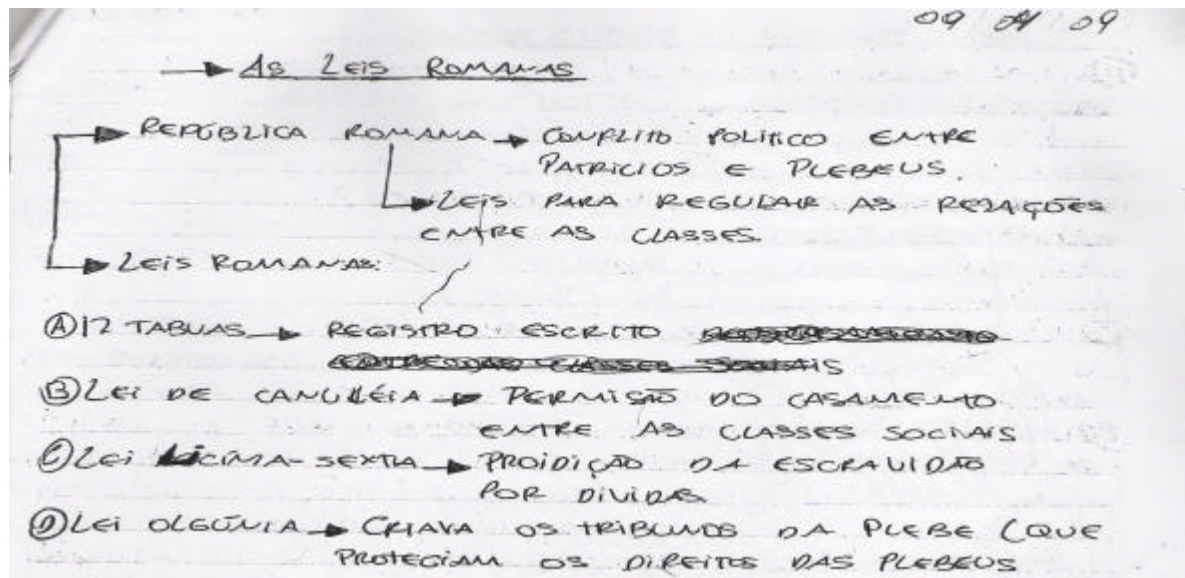 09 / 04 / 09
→ AS LEIS ROMANAS
→ REPÚBLICA ROMANA → CONFLITO POLITICO ENTRE
PATRICIOS E PLEBEUS.
→ LEIS PARA REGULAR AS RELAÇÕES
ENTRE AS CLASSES.
→ LEIS ROMANAS:
Ⓐ 12 TABUAS → REGISTRO ESCRITO
Ⓑ LEI DE CANULÉIA → PERMISÃO DO CASAMENTO
ENTRE AS CLASSES SOCIAIS
Ⓒ LEI LICINIA-SEXTIA → PROIDIÇÃO DA ESCRAVIDÃO
POR DIVIDAS
Ⓓ LEI OLGÚNIA → CRIAVA OS TRIBUNOS DA PLEBE (QUE
PROTEGIAM OS DIREITOS DAS PLEBEUS